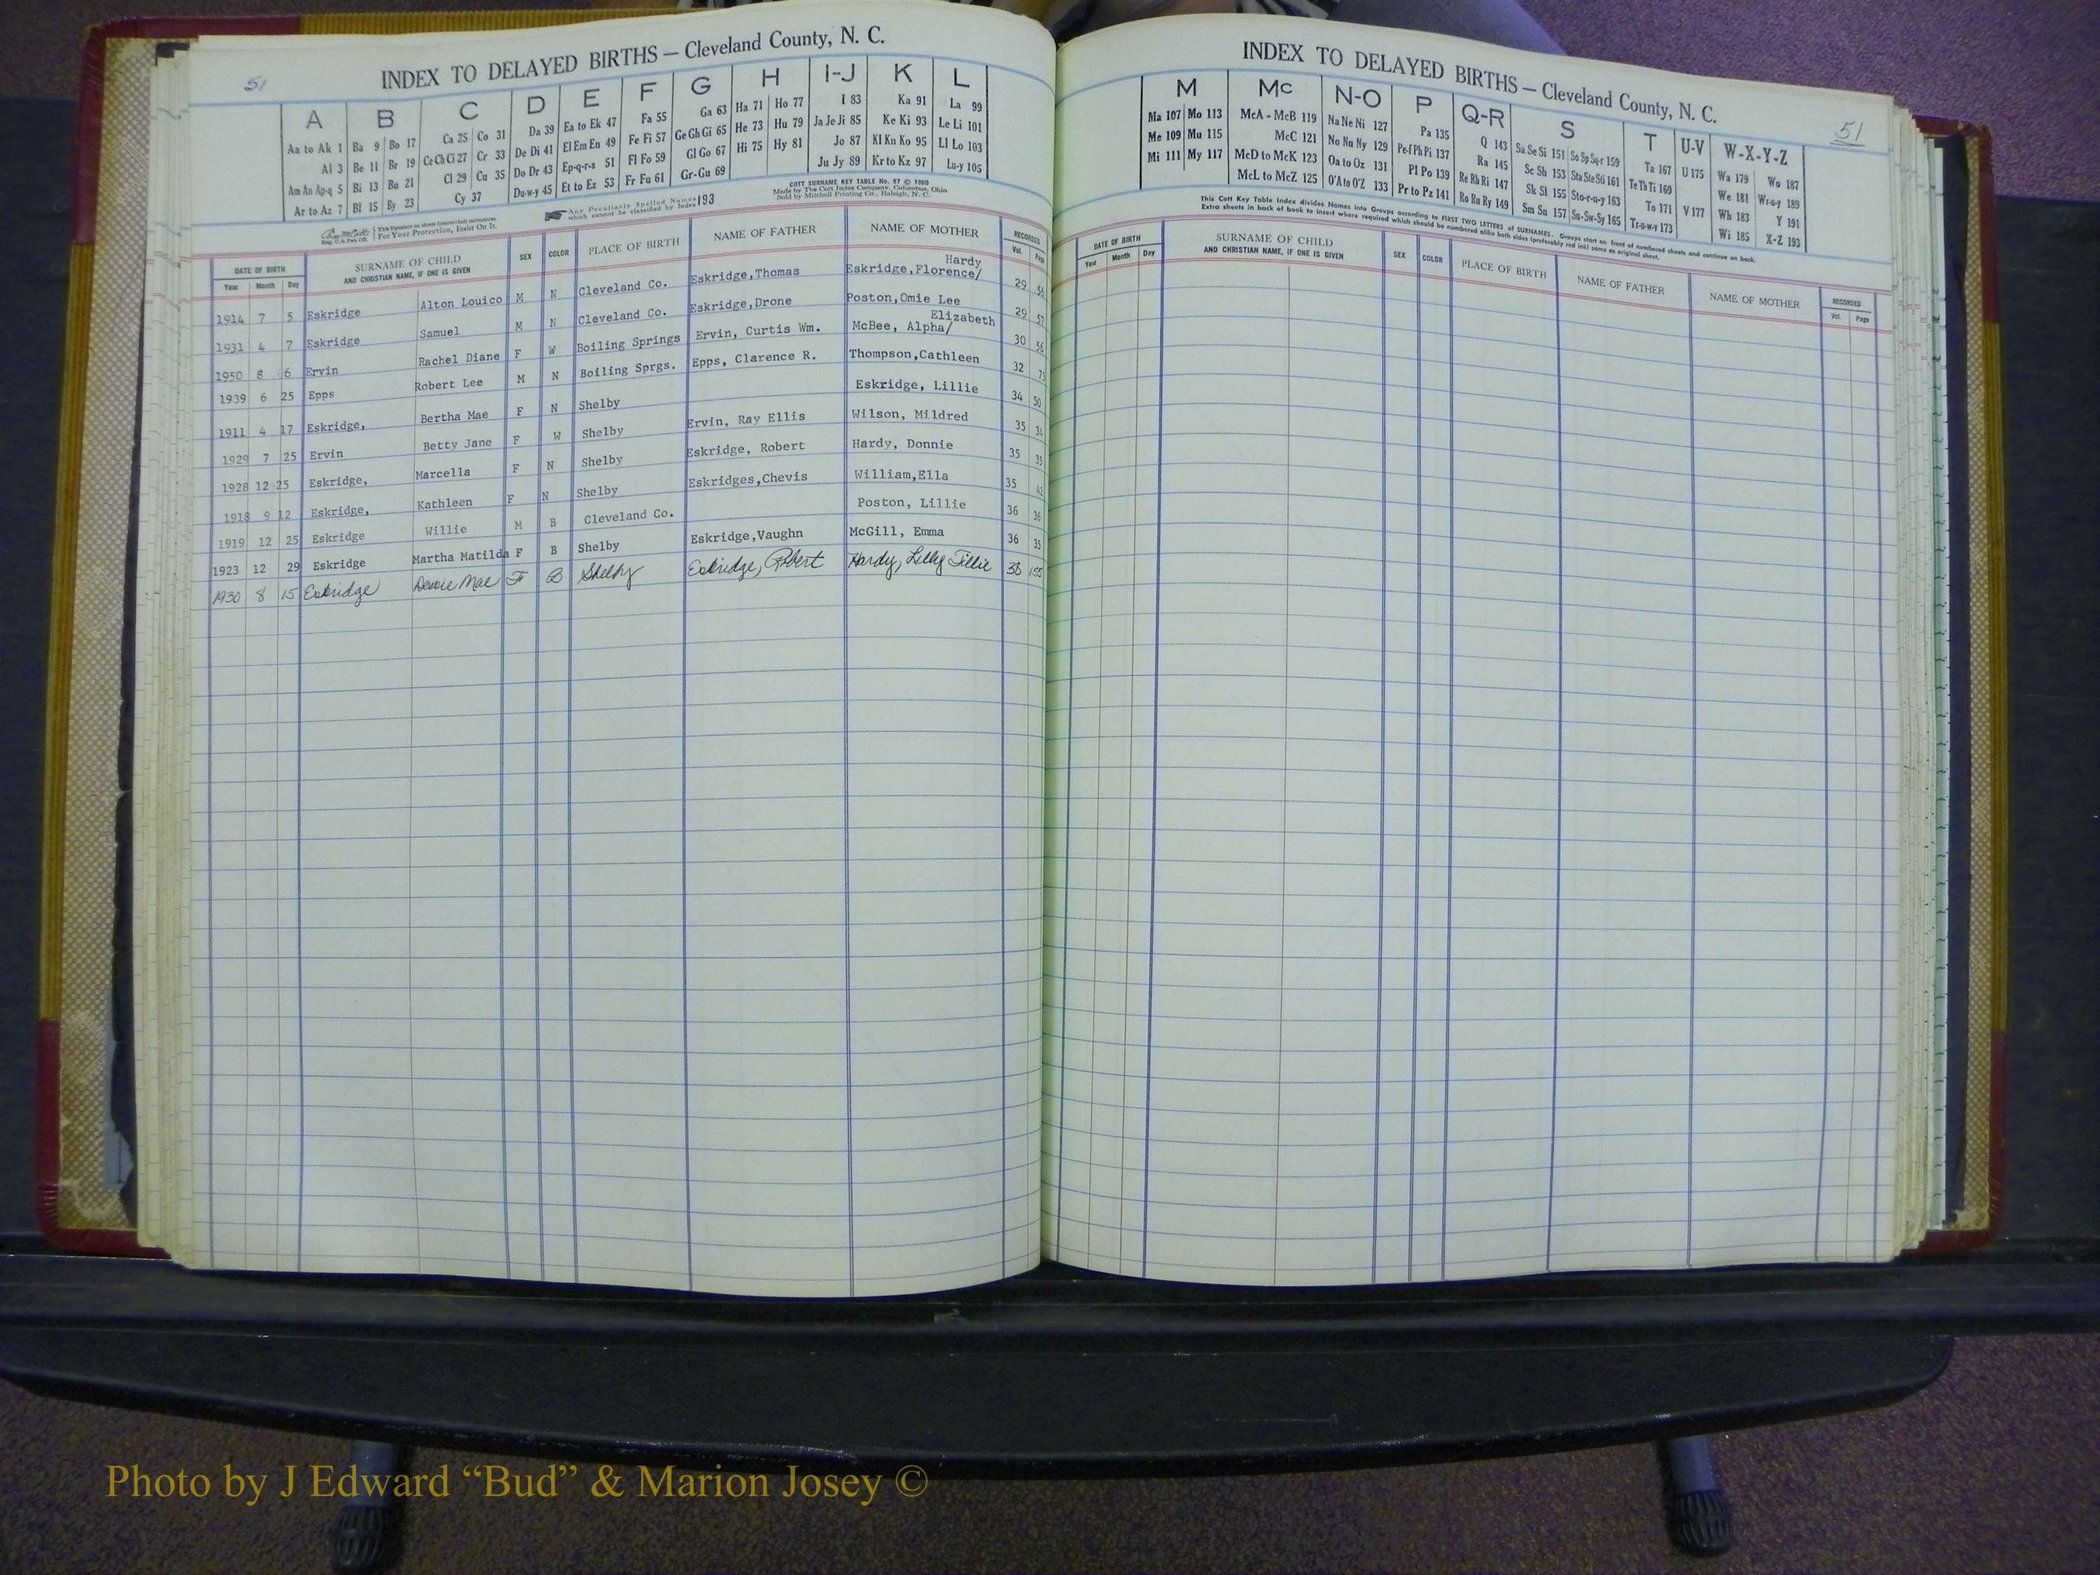 51
INDEX TO DELAYED BIRTHS — Cleveland County, N. C.
A B C D E F G H I-J K L
Aa to Ak 1 Ba 9 Bo 17 Ca 25 Co 31 Da 39 Ea to Ek 47 Fa 55 Ga 63 Ha 71 Ho 77 I 83 Ka 91 La 99
Al 3 Be 11 Br 19 Ce Ch Ci 27 Cr 33 De Di 41 El Em En 49 Fe Fi 57 Ge Gh Gi 65 He 73 Hu 79 Ja Je Ji 85 Ke Ki 93 Le Li 101
Am An Ap-q 5 Bi 13 Bu 21 Cl 29 Cu 35 Do Dr 43 Ep-q-r-s 51 Fl Fo 59 Gl Go 67 Hi 75 Hy 81 Jo 87 Kl Kn Ko 95 Ll Lo 103
Ar to Az 7 Bl 15 By 23 Cy 37 Du-w-y 45 Et to Ez 53 Fr Fu 61 Gr-Gu 69 Ju Jy 89 Kr to Kz 97 Lu-y 105
For Your Protection, Insist On It.
Any Peculiarly Spelled Names which cannot be classified by Index 193
COTT SURNAME KEY TABLE No. 97 © 1960
Made by The Cott Index Company, Columbus, Ohio
Sold by Mitchell Printing Co., Raleigh, N. C.
DATE OF BIRTH SURNAME OF CHILD SEX COLOR PLACE OF BIRTH NAME OF FATHER NAME OF MOTHER RECORDED
Year Month Day AND CHRISTIAN NAME, IF ONE IS GIVEN Vol. Page
Hardy
1914 7 5 Eskridge Alton Louico M N Cleveland Co. Eskridge,Thomas Eskridge,Florence/ 29 56
1931 4 7 Eskridge Samuel M N Cleveland Co. Eskridge,Drone Poston,Omie Lee 29 57
Elizabeth
1950 8 6 Ervin Rachel Diane F W Boiling Springs Ervin, Curtis Wm. McBee, Alpha/ 30 56
1939 6 25 Epps Robert Lee M N Boiling Sprgs. Epps, Clarence R. Thompson,Cathleen 32
1911 4 17 Eskridge, Bertha Mae F N Shelby Eskridge, Lillie 34 50
1929 7 25 Ervin Betty Jane F W Shelby Ervin, Ray Ellis Wilson, Mildred 35
1928 12 25 Eskridge, Marcella F N Shelby Eskridge, Robert Hardy, Donnie 35 35
1918 9 12 Eskridge, Kathleen F N Shelby Eskridges,Chevis William,Ella 35 42
1919 12 25 Eskridge Willie M B Cleveland Co. Poston, Lillie 36 36
1923 12 29 Eskridge Martha Matilda F B Shelby Eskridge,Vaughn McGill, Emma 36 35
1930 8 15 Eskridge Mae F B Shelby Eskridge, Robert Hardy, Lilly Tillie 38 155
INDEX TO DELAYED BIRTHS — Cleveland County, N. C.
51
M Mc N-O P Q-R S T U-V W-X-Y-Z
Ma 107 Mo 113 McA - McB 119 Na Ne Ni 127 Pa 135 Q 143 Sa Se Si 151 So Sp Sq-r 159 Ta 167 U 175 Wa 179 Wo 187
Me 109 Mu 115 McC 121 No Nu Ny 129 Pe-f Ph Pi 137 Ra 145 Sc Sh 153 Sta Ste Sti 161 Te Th Ti 169 We 181 Wr-u-y 189
Mi 111 My 117 McD to McK 123 Oa to Oz 131 Pl Po 139 Re Rh Ri 147 Sk Sl 155 Sto-r-u-y 163 To 171 V 177 Wh 183 Y 191
McL to McZ 125 O'A to O'Z 133 Pr to Pz 141 Ro Ru Ry 149 Sm Sn 157 Su-Sw-Sy 165 Tr-u-w-y 173 Wi 185 X-Z 193
This Cott Key Table Index divides Names into Groups according to FIRST TWO LETTERS of SURNAMES. Groups start on front of numbered sheets and continue on back.
Extra sheets in back of book to insert where required which should be numbered alike both sides (preferably red ink) same as original sheet.
DATE OF BIRTH SURNAME OF CHILD SEX COLOR PLACE OF BIRTH NAME OF FATHER NAME OF MOTHER RECORDED
Year Month Day AND CHRISTIAN NAME, IF ONE IS GIVEN Vol. Page
Photo by J Edward “Bud” & Marion Josey ©